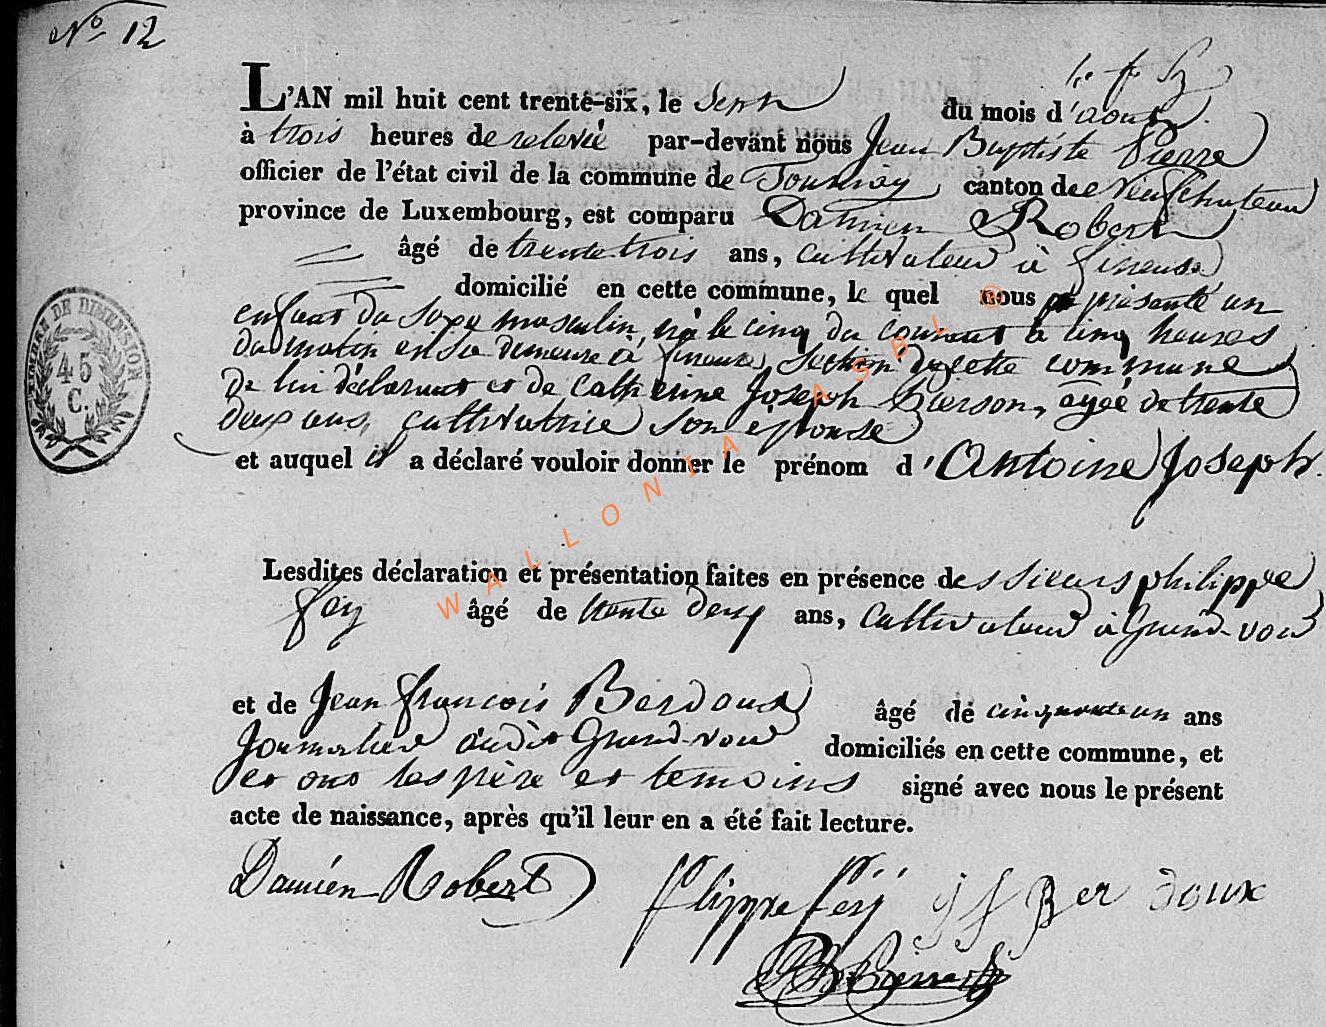 No 12
L'AN mil huit cent trente-six, le Sept du mois d'aout
à trois heures de relevée par-devant nous Jean Baptiste Pierre
officier de l'état civil de la commune de Tournay canton de Neufchateau
province de Luxembourg, est comparu Damien Robert
âgé de trente trois ans, cultivateur à fineuse
domicilié en cette commune, le quel nous présenté un
enfant du sexe masculin, né le cinq du courant à cinq heures
du matin en sa demeure à fineuse, section de cette commune
de lui déclarant et de Catherine Joseph Pierson, agée de trente
deux ans, cultivatrice son épouse
et auquel il a déclaré vouloir donner le prénom d'Antoine Joseph.
TIMBRE DE DIMENSION
45
C.
Lesdites déclaration et présentation faites en présence des sieurs philippe
fery âgé de trente deux ans, cultivateur à Grand-voir
et de Jean françois Berdoux âgé de cinquante un ans
Journalier audit Grand-voir domiciliés en cette commune, et
et ont les père et temoins signé avec nous le présent
acte de naissance, après qu'il leur en a été fait lecture.
Damien Robert flippe fery J f Ber doux
WALLONIA ASBL ®